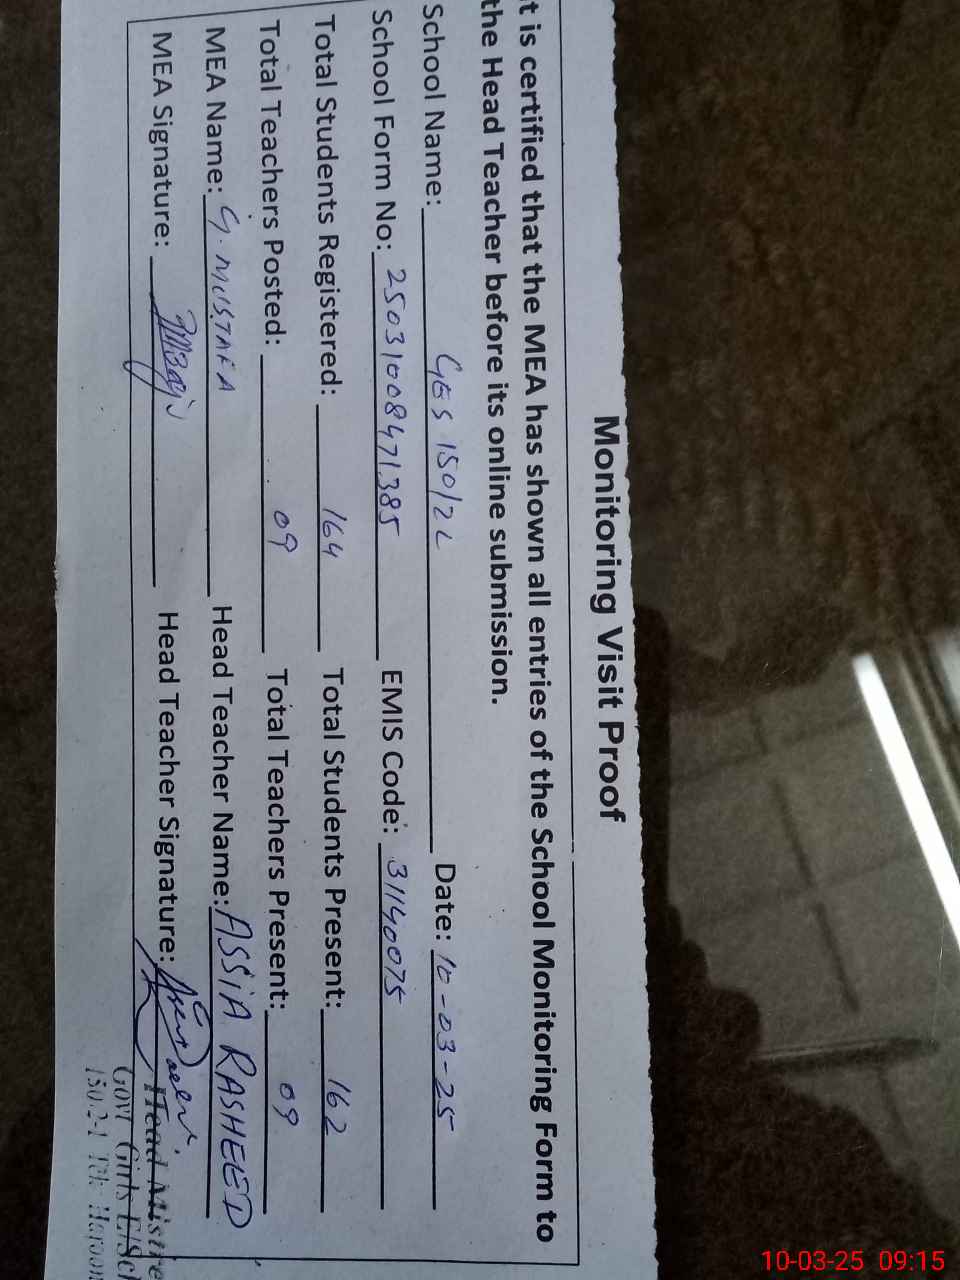 Monitoring Visit Proof
t is certified that the MEA has shown all entries of the School Monitoring Form to
the Head Teacher before its online submission.
School Name: GES 150/2L Date: 10-03-25
School Form No: 25031008471385 EMIS Code: 31140075
Total Students Registered: 164 Total Students Present: 162
Total Teachers Posted: 09 Total Teachers Present: 09
MEA Name: G. MUSTAFA Head Teacher Name: ASSIA RASHEED
MEA Signature: Head Teacher Signature:
Head Mistre
Govt Girls E/Sch
150.2-L Teh: Haroon
10-03-25 09:15